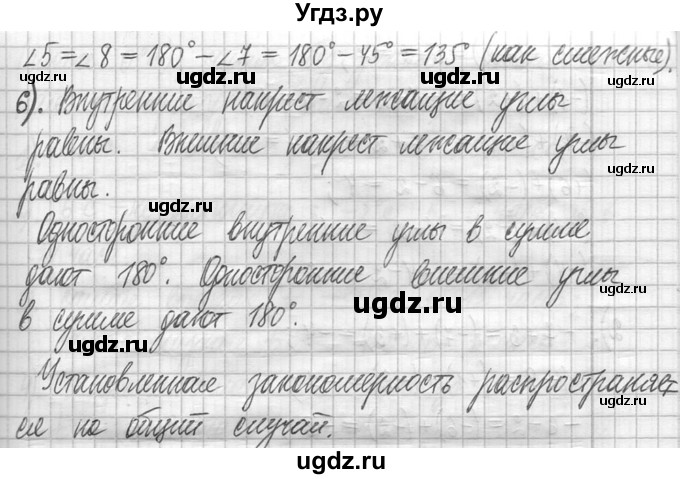 Угдз.ру
∠5 = ∠8 = 180° – ∠7 = 180° – 45° = 135° (как смежные).
б). Внутренние накрест лежащие углы
равены. Внешние накрест лежащие углы
равны.
Односторонние внутренние углы в сумме
дают 180°. Односторонние внешние углы
в сумме дают 180°.
Установленная закономерность распространяет
ся на общий случай.
ugdz.ru
ugdz.ru
ugdz.ru
ugdz.ru
ugdz.ru
ugdz.ru
ugdz.ru
ugdz.ru
ugdz.ru
ugdz.ru
ugdz.ru
ugdz.ru
ugdz.ru